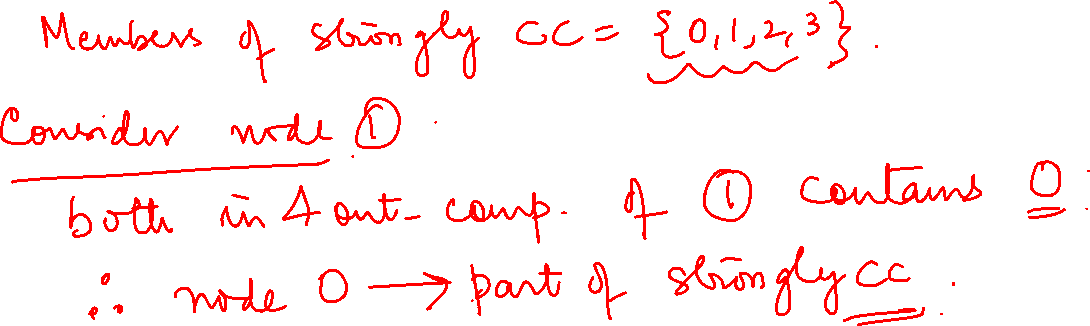 Members of strongly CC = {0,1,2,3}.
Consider node ①.
both in & out-comp. of ① contains 0.
∴ node 0 → part of strongly CC.